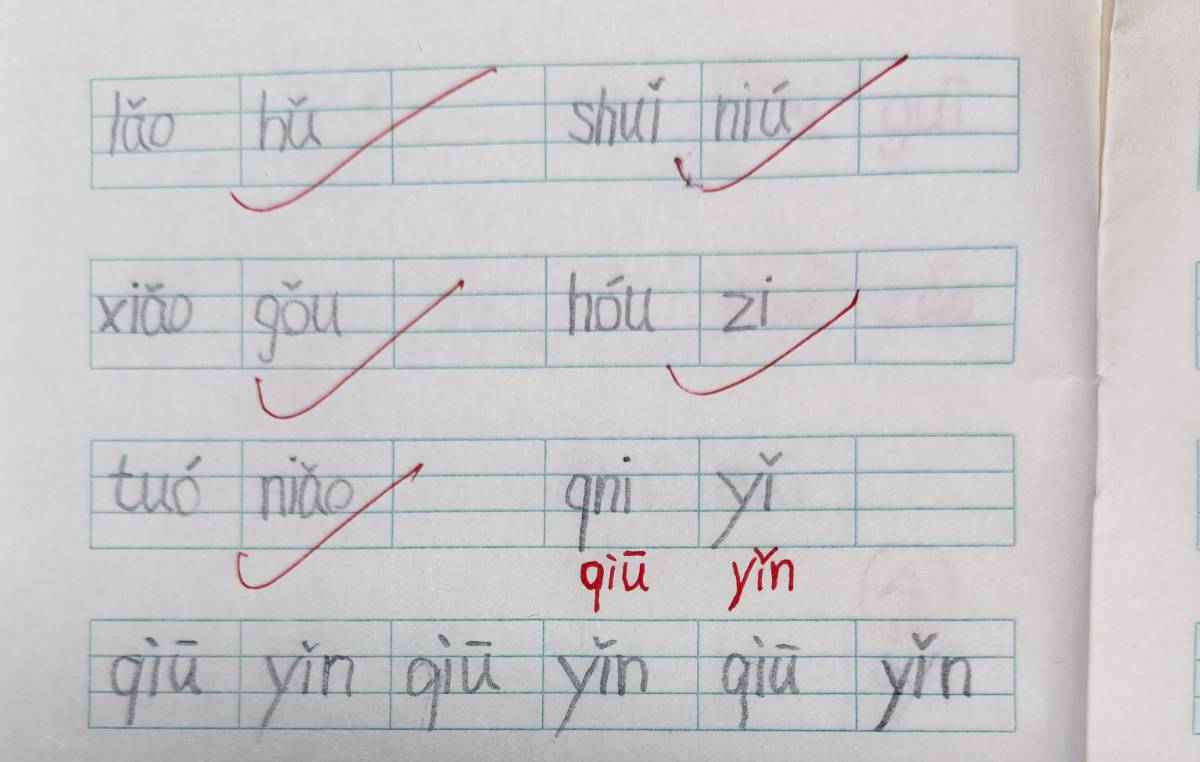 lǎo hǔ shuǐ niú
xiǎo gǒu hóu zi
tuó niǎo qni yǐ
qiū yǐn
qiū yǐn qiū yǐn qiū yǐn